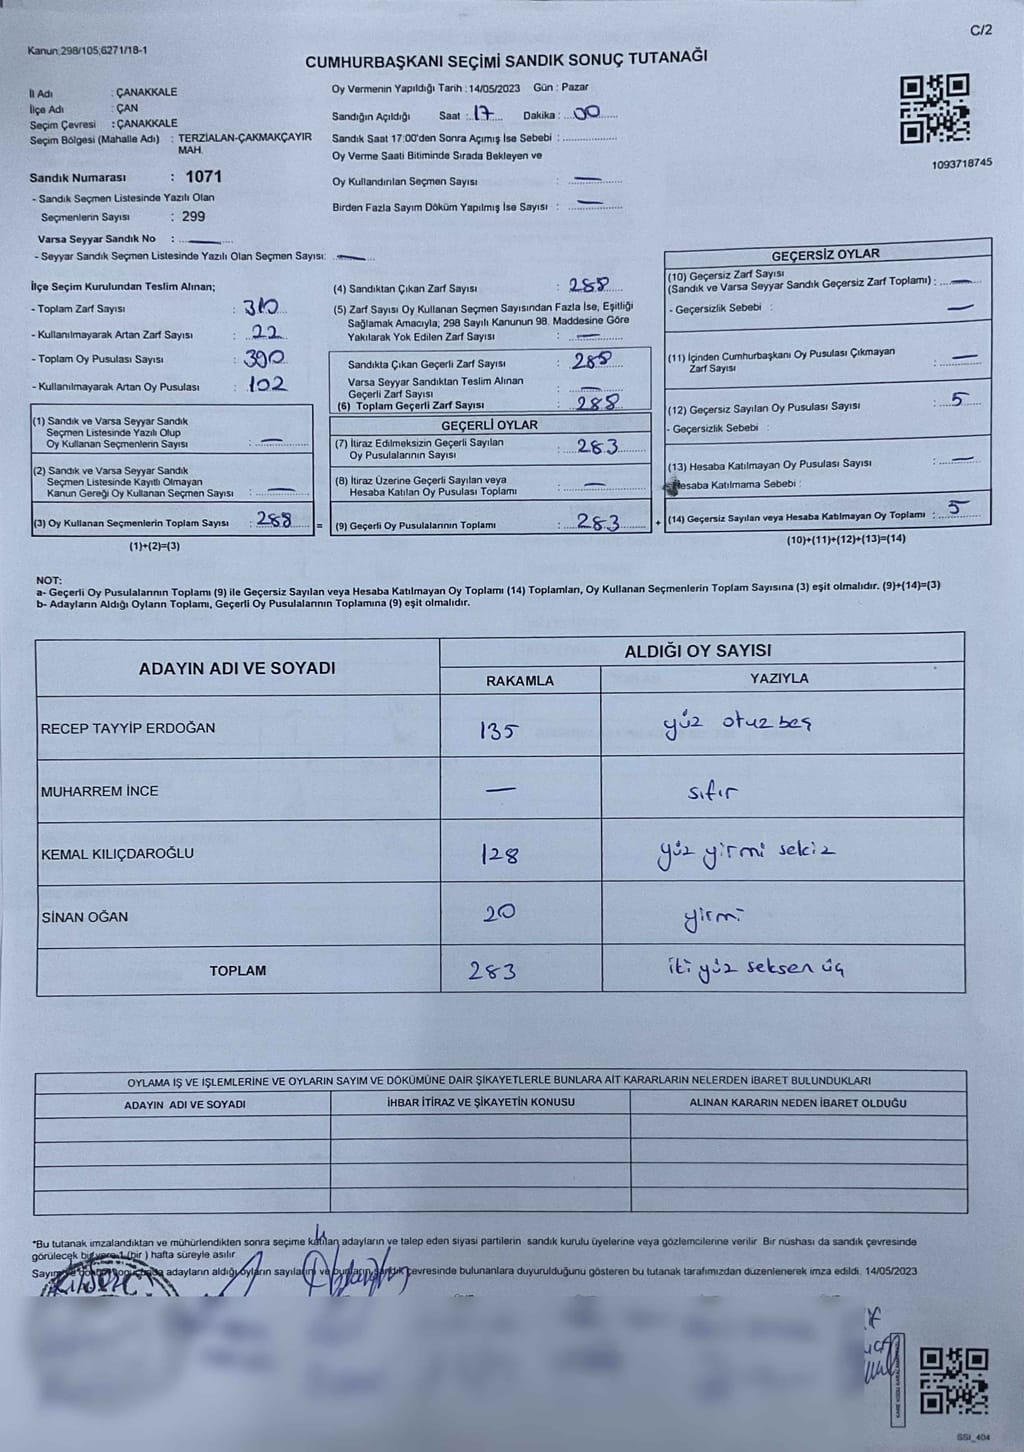 C/2
Kanun:298/105;6271/18-1
CUMHURBAŞKANI SEÇİMİ SANDIK SONUÇ TUTANAĞI
İl Adı : ÇANAKKALE
İlçe Adı : ÇAN
Seçim Çevresi : ÇANAKKALE
Seçim Bölgesi (Mahalle Adı) : TERZİALAN-ÇAKMAKÇAYIR
MAH.
Sandık Numarası : 1071
- Sandık Seçmen Listesinde Yazılı Olan
Seçmenlerin Sayısı : 299
Varsa Seyyar Sandık No : —
- Seyyar Sandık Seçmen Listesinde Yazılı Olan Seçmen Sayısı: —
Oy Vermenin Yapıldığı Tarih : 14/05/2023 Gün : Pazar
Sandığın Açıldığı Saat : 17 Dakika : 00
Sandık Saat 17:00'den Sonra Açımış İse Sebebi :
Oy Verme Saati Bitiminde Sırada Bekleyen ve
Oy Kullandırılan Seçmen Sayısı : —
Birden Fazla Sayım Döküm Yapılmış İse Sayısı : —
1093718745
İlçe Seçim Kurulundan Teslim Alınan;
- Toplam Zarf Sayısı : 310
- Kullanılmayarak Artan Zarf Sayısı : 22
- Toplam Oy Pusulası Sayısı : 390
- Kullanılmayarak Artan Oy Pusulası : 102
(1) Sandık ve Varsa Seyyar Sandık
Seçmen Listesinde Yazılı Olup
Oy Kullanan Seçmenlerin Sayısı : —
(2) Sandık ve Varsa Seyyar Sandık
Seçmen Listesinde Kayıtlı Olmayan
Kanun Gereği Oy Kullanan Seçmen Sayısı : —
(3) Oy Kullanan Seçmenlerin Toplam Sayısı : 288 =
(1)+(2)=(3)
(4) Sandıktan Çıkan Zarf Sayısı : 288
(5) Zarf Sayısı Oy Kullanan Seçmen Sayısından Fazla İse, Eşitliği
Sağlamak Amacıyla; 298 Sayılı Kanunun 98. Maddesine Göre
Yakılarak Yok Edilen Zarf Sayısı : —
Sandıkta Çıkan Geçerli Zarf Sayısı : 288
Varsa Seyyar Sandıktan Teslim Alınan
Geçerli Zarf Sayısı : —
(6) Toplam Geçerli Zarf Sayısı : 288
GEÇERLİ OYLAR
(7) İtiraz Edilmeksizin Geçerli Sayılan
Oy Pusulalarının Sayısı : 283
(8) İtiraz Üzerine Geçerli Sayılan veya
Hesaba Katılan Oy Pusulası Toplamı : —
(9) Geçerli Oy Pusulalarının Toplamı : 283 +
GEÇERSİZ OYLAR
(10) Geçersiz Zarf Sayısı
(Sandık ve Varsa Seyyar Sandık Geçersiz Zarf Toplamı) : —
- Geçersizlik Sebebi : —
(11) İçinden Cumhurbaşkanı Oy Pusulası Çıkmayan
Zarf Sayısı : —
(12) Geçersiz Sayılan Oy Pusulası Sayısı : 5
- Geçersizlik Sebebi :
(13) Hesaba Katılmayan Oy Pusulası Sayısı : —
Hesaba Katılmama Sebebi :
(14) Geçersiz Sayılan veya Hesaba Katılmayan Oy Toplamı : 5
(10)+(11)+(12)+(13)=(14)
NOT:
a- Geçerli Oy Pusulalarının Toplamı (9) ile Geçersiz Sayılan veya Hesaba Katılmayan Oy Toplamı (14) Toplamları, Oy Kullanan Seçmenlerin Toplam Sayısına (3) eşit olmalıdır. (9)+(14)=(3)
b- Adayların Aldığı Oyların Toplamı, Geçerli Oy Pusulalarının Toplamına (9) eşit olmalıdır.
ADAYIN ADI VE SOYADI
ALDIĞI OY SAYISI
RAKAMLA YAZIYLA
RECEP TAYYİP ERDOĞAN 135 yüz otuz beş
MUHARREM İNCE — sıfır
KEMAL KILIÇDAROĞLU 128 yüz yirmi sekiz
SİNAN OĞAN 20 yirmi
TOPLAM 283 iki yüz seksen üç
OYLAMA İŞ VE İŞLEMLERİNE VE OYLARIN SAYIM VE DÖKÜMÜNE DAİR ŞİKAYETLERLE BUNLARA AİT KARARLARIN NELERDEN İBARET BULUNDUKLARI
ADAYIN ADI VE SOYADI İHBAR İTİRAZ VE ŞİKAYETİN KONUSU ALINAN KARARIN NEDEN İBARET OLDUĞU
*Bu tutanak imzalandıktan ve mühürlendikten sonra seçime katılan adayların ve talep eden siyasi partilerin sandık kurulu üyelerine veya gözlemcilerine verilir. Bir nüshası da sandık çevresinde
görülecek bir yere 1 (bir ) hafta süreyle asılır.
adayların aldığı oyların sayılarını çevresinde bulunanlara duyurulduğunu gösteren bu tutanak tarafımızdan düzenlenerek imza edildi. 14/05/2023
SSI_404